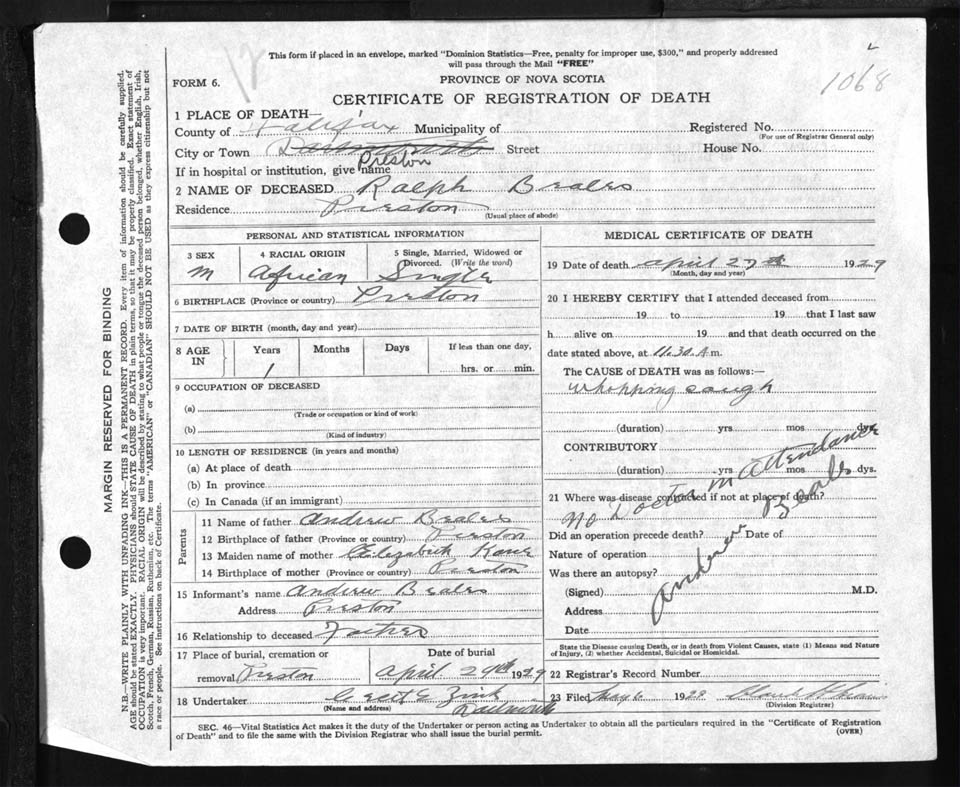 This form if placed in an envelope, marked "Dominion Statistics—Free, penalty for improper use, $300," and properly addressed
will pass through the Mail "FREE"
12
1068
FORM 6.
PROVINCE OF NOVA SCOTIA
CERTIFICATE OF REGISTRATION OF DEATH
MARGIN RESERVED FOR BINDING
N.B.—WRITE PLAINLY WITH UNFADING INK—THIS IS A PERMANENT RECORD. Every item of information should be carefully supplied.
AGE should be stated EXACTLY. PHYSICIANS should STATE CAUSE OF DEATH in plain terms, so that it may be properly classified. Exact statement of
OCCUPATION is very important. RACIAL ORIGIN will be described by stating to what people or tongue the deceased person belonged, whether English, Irish,
Scotch, French, German, Russian, Ruthenian, etc. The terms "AMERICAN" or "CANADIAN" SHOULD NOT BE USED as they express citizenship but not
a race or people. See instructions on back of Certificate.
1 PLACE OF DEATH—
County of Halifax Municipality of Registered No.
(For use of Registrar General only)
City or Town Dartmouth Street House No.
If in hospital or institution, give name Preston
2 NAME OF DECEASED Ralph Beales
Residence Preston
(Usual place of abode)
PERSONAL AND STATISTICAL INFORMATION
3 SEX 4 RACIAL ORIGIN 5 Single, Married, Widowed or
Divorced. (Write the word)
M African Single
6 BIRTHPLACE (Province or country) Preston
7 DATE OF BIRTH (month, day and year)
8 AGE IN Years Months Days If less than one day,
1 hrs. or min.
9 OCCUPATION OF DECEASED
(a)
(Trade or occupation or kind of work)
(b)
(Kind of industry)
10 LENGTH OF RESIDENCE (in years and months)
(a) At place of death
(b) In province
(c) In Canada (if an immigrant)
Parents
11 Name of father Andrew Beales
12 Birthplace of father (Province or country) Preston
13 Maiden name of mother Elizabeth
14 Birthplace of mother (Province or country) Preston
15 Informant's name Andrew Beales
Address Preston
16 Relationship to deceased Father
17 Place of burial, cremation or Date of burial
removal Preston April 29th 1929
18 Undertaker Zink
(Name and address)
MEDICAL CERTIFICATE OF DEATH
19 Date of death April 27th 1929
(Month, day and year)
20 I HEREBY CERTIFY that I attended deceased from
19 to 19 that I last saw
h alive on 19 and that death occurred on the
date stated above, at 11.30 A m.
The CAUSE of DEATH was as follows:—
Whopping cough
(duration) yrs mos dys.
CONTRIBUTORY
(duration) yrs mos dys.
21 Where was disease contracted if not at place of death?
No Doctor in attendance
Did an operation precede death? Date of
Nature of operation
Was there an autopsy?
(Signed) M.D.
Andrew Beals
Address
Date
State the Disease causing Death, or in death from Violent Causes, state (1) Means and Nature
of Injury, (2) whether Accidental, Suicidal or Homicidal.
22 Registrar's Record Number
23 Filed May 6 1929
(Division Registrar)
SEC. 46—Vital Statistics Act makes it the duty of the Undertaker or person acting as Undertaker to obtain all the particulars required in the "Certificate of Registration
of Death" and to file the same with the Division Registrar who shall issue the burial permit.
(OVER)